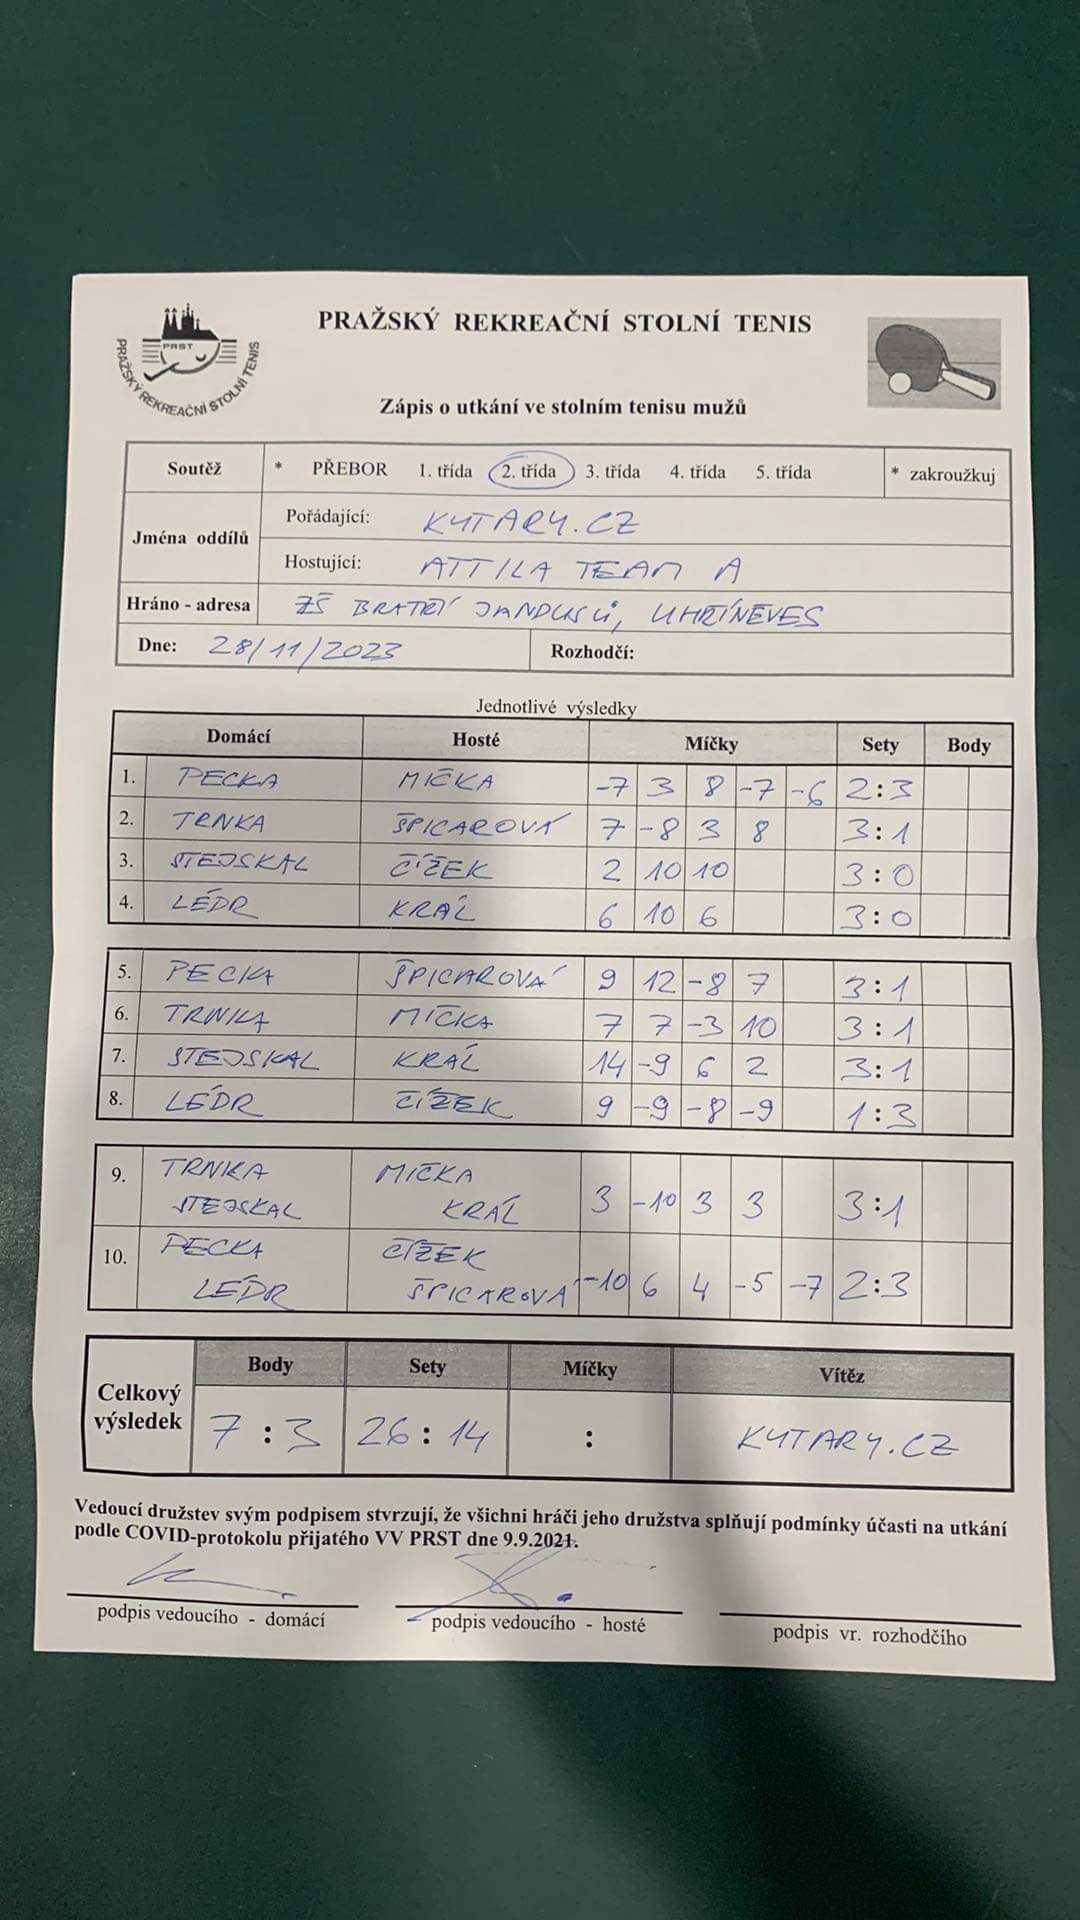 PRAŽSKÝ REKREAČNÍ STOLNÍ TENIS
PRST
PRAŽSKÝ REKREAČNÍ STOLNÍ TENIS
Zápis o utkání ve stolním tenisu mužů
Soutěž * PŘEBOR 1. třída 2. třída 3. třída 4. třída 5. třída * zakroužkuj
Jména oddílů
Pořádající: KYTARY.CZ
Hostující: ATTILA TEAM A
Hráno - adresa ZŠ BRATŘÍ JANDUSŮ, UHŘÍNĚVES
Dne: 28/11/2023 Rozhodčí:
Jednotlivé výsledky
Domácí Hosté Míčky Sety Body
1. PECKA MIČKA -7 3 8 -7 -6 2:3
2. TRNKA ŠPICAROVÁ 7 -8 3 8 3:1
3. STEJSKAL ČÍŽEK 2 10 10 3:0
4. LÉDR KRÁL 6 10 6 3:0
5. PECKA ŠPICAROVÁ 9 12 -8 7 3:1
6. TRNKA MIČKA 7 7 -3 10 3:1
7. STEJSKAL KRÁL 14 -9 6 2 3:1
8. LÉDR ČÍŽEK 9 -9 -8 -9 1:3
9. TRNKA MIČKA
STEJSKAL KRÁL 3 -10 3 3 3:1
10. PECKA ČÍŽEK
LÉDR ŠPICAROVÁ -10 6 4 -5 -7 2:3
Body Sety Míčky Vítěz
Celkový výsledek 7:3 26:14 : KYTARY.CZ
Vedoucí družstev svým podpisem stvrzují, že všichni hráči jeho družstva splňují podmínky účasti na utkání
podle COVID-protokolu přijatého VV PRST dne 9.9.2021.
podpis vedoucího - domácí podpis vedoucího - hosté podpis vr. rozhodčího